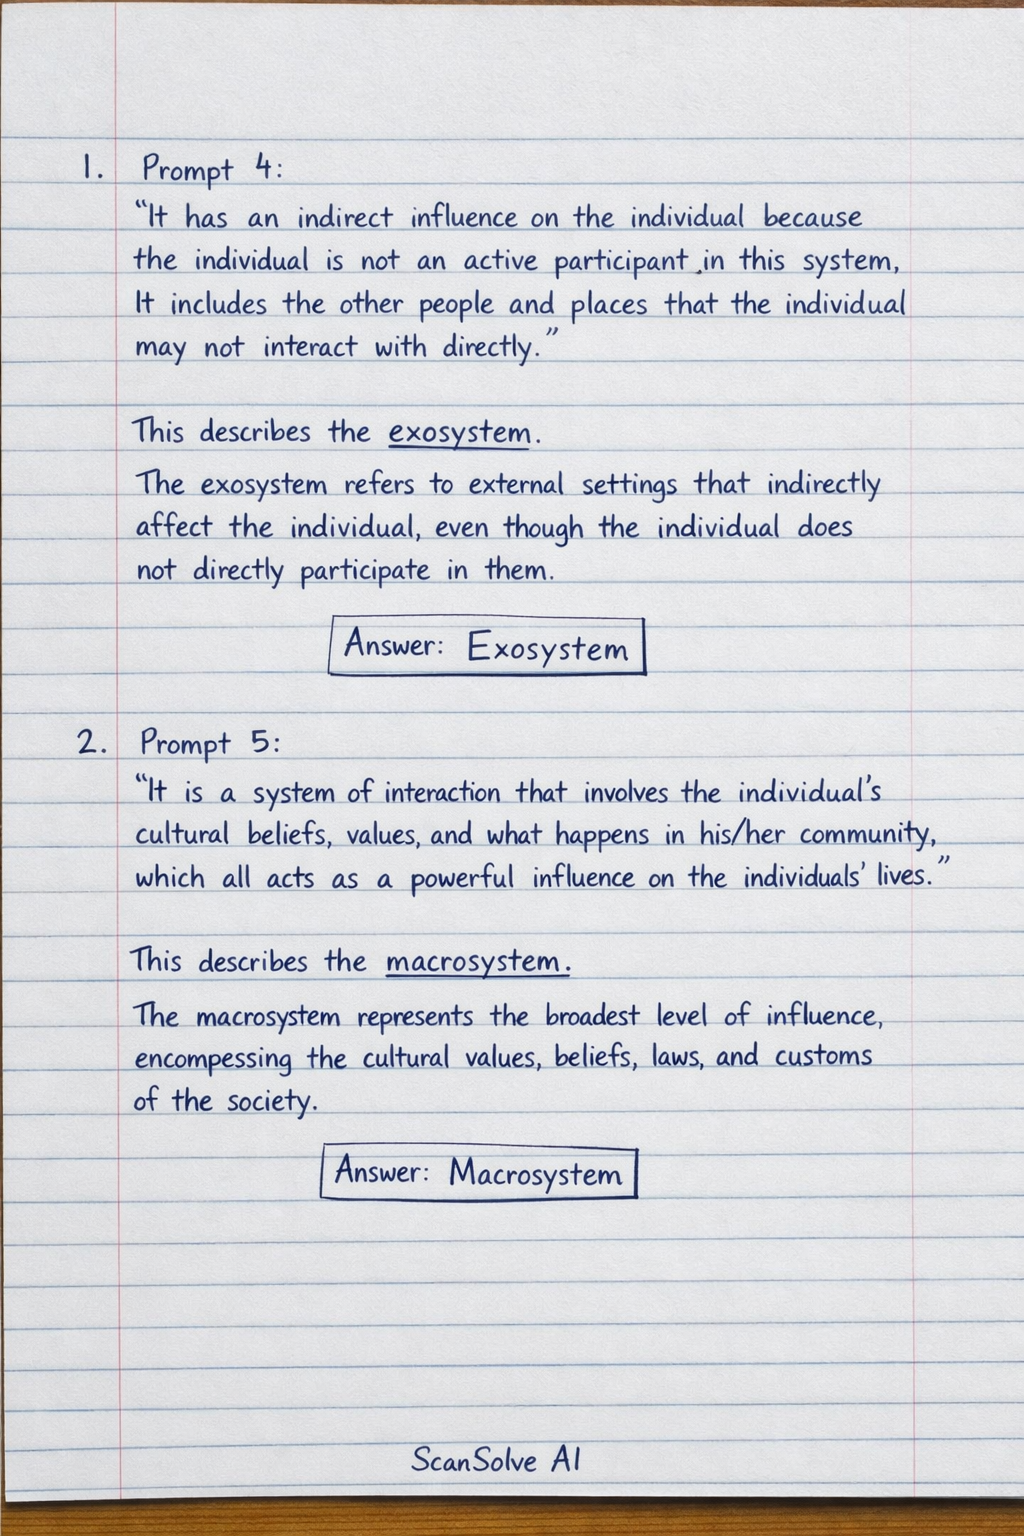 1. Prompt 4:
“It has an indirect influence on the individual because
the individual is not an active participant in this system,
It includes the other people and places that the individual
may not interact with directly.”
This describes the exosystem.
The exosystem refers to external settings that indirectly
affect the individual, even though the individual does
not directly participate in them.
Answer: Exosystem
2. Prompt 5:
“It is a system of interaction that involves the individual's
cultural beliefs, values, and what happens in his/her community,
which all acts as a powerful influence on the individuals' lives.”
This describes the macrosystem.
The macrosystem represents the broadest level of influence,
encompessing the cultural values, beliefs, laws, and customs
of the society.
Answer: Macrosystem
ScanSolve AI